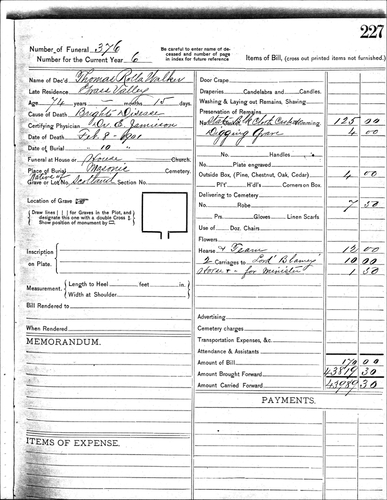 227
Number of Funeral 376
Number for the Current Year 6
Be careful to enter number of deceased and number of page in index for future reference
Items of Bill, (cross out printed items not furnished.)
Name of Dec'd. Thomas Rolla Walker
Late Residence Grass Valley
Age 74 years — months 15 days.
Cause of Death Brights Disease
Certifying Physician Dr. E. Jamison
Date of Death Feb 8 -
Date of Burial " 10 "
Funeral at House or House Church.
Place of Burial Masonic Cemetery.
Native of Scotland
Grave or Lot No. Section No.
Location of Grave
Draw lines ( | ) for Graves in the Plot, and designate this one with a double Cross
Show position of monument by
Inscription on Plate.
Measurement. Length to Heel feet in.
Width at Shoulder
Bill Rendered to
When Rendered
MEMORANDUM.
ITEMS OF EXPENSE.
Door Crape
Draperies Candelabra and Candles.
Washing & Laying out Remains, Shaving
Preservation of Remains
Cloth 125 00
Digging Grave 4 00
No. Handles
No. Plate engraved
Outside Box, (Pine, Chestnut, Oak, Cedar) 4 00
P/Y H'd'l's Corners on Box.
Delivering to Cemetery
No. Robe 7 50
Prs. Gloves Linen Scarfs
Use of Doz. Chairs
Flowers
Hearse & Team 12 00
2 Carriages to 10 00
Horse & - for Minister 1 50
Advertising
Cemetery charges
Transportation Expenses, &c.
Attendance & Assistants
Amount of Bill 170 00
Amount Brought Forward 43819 30
Amount Carried Forward 43989 30
PAYMENTS.